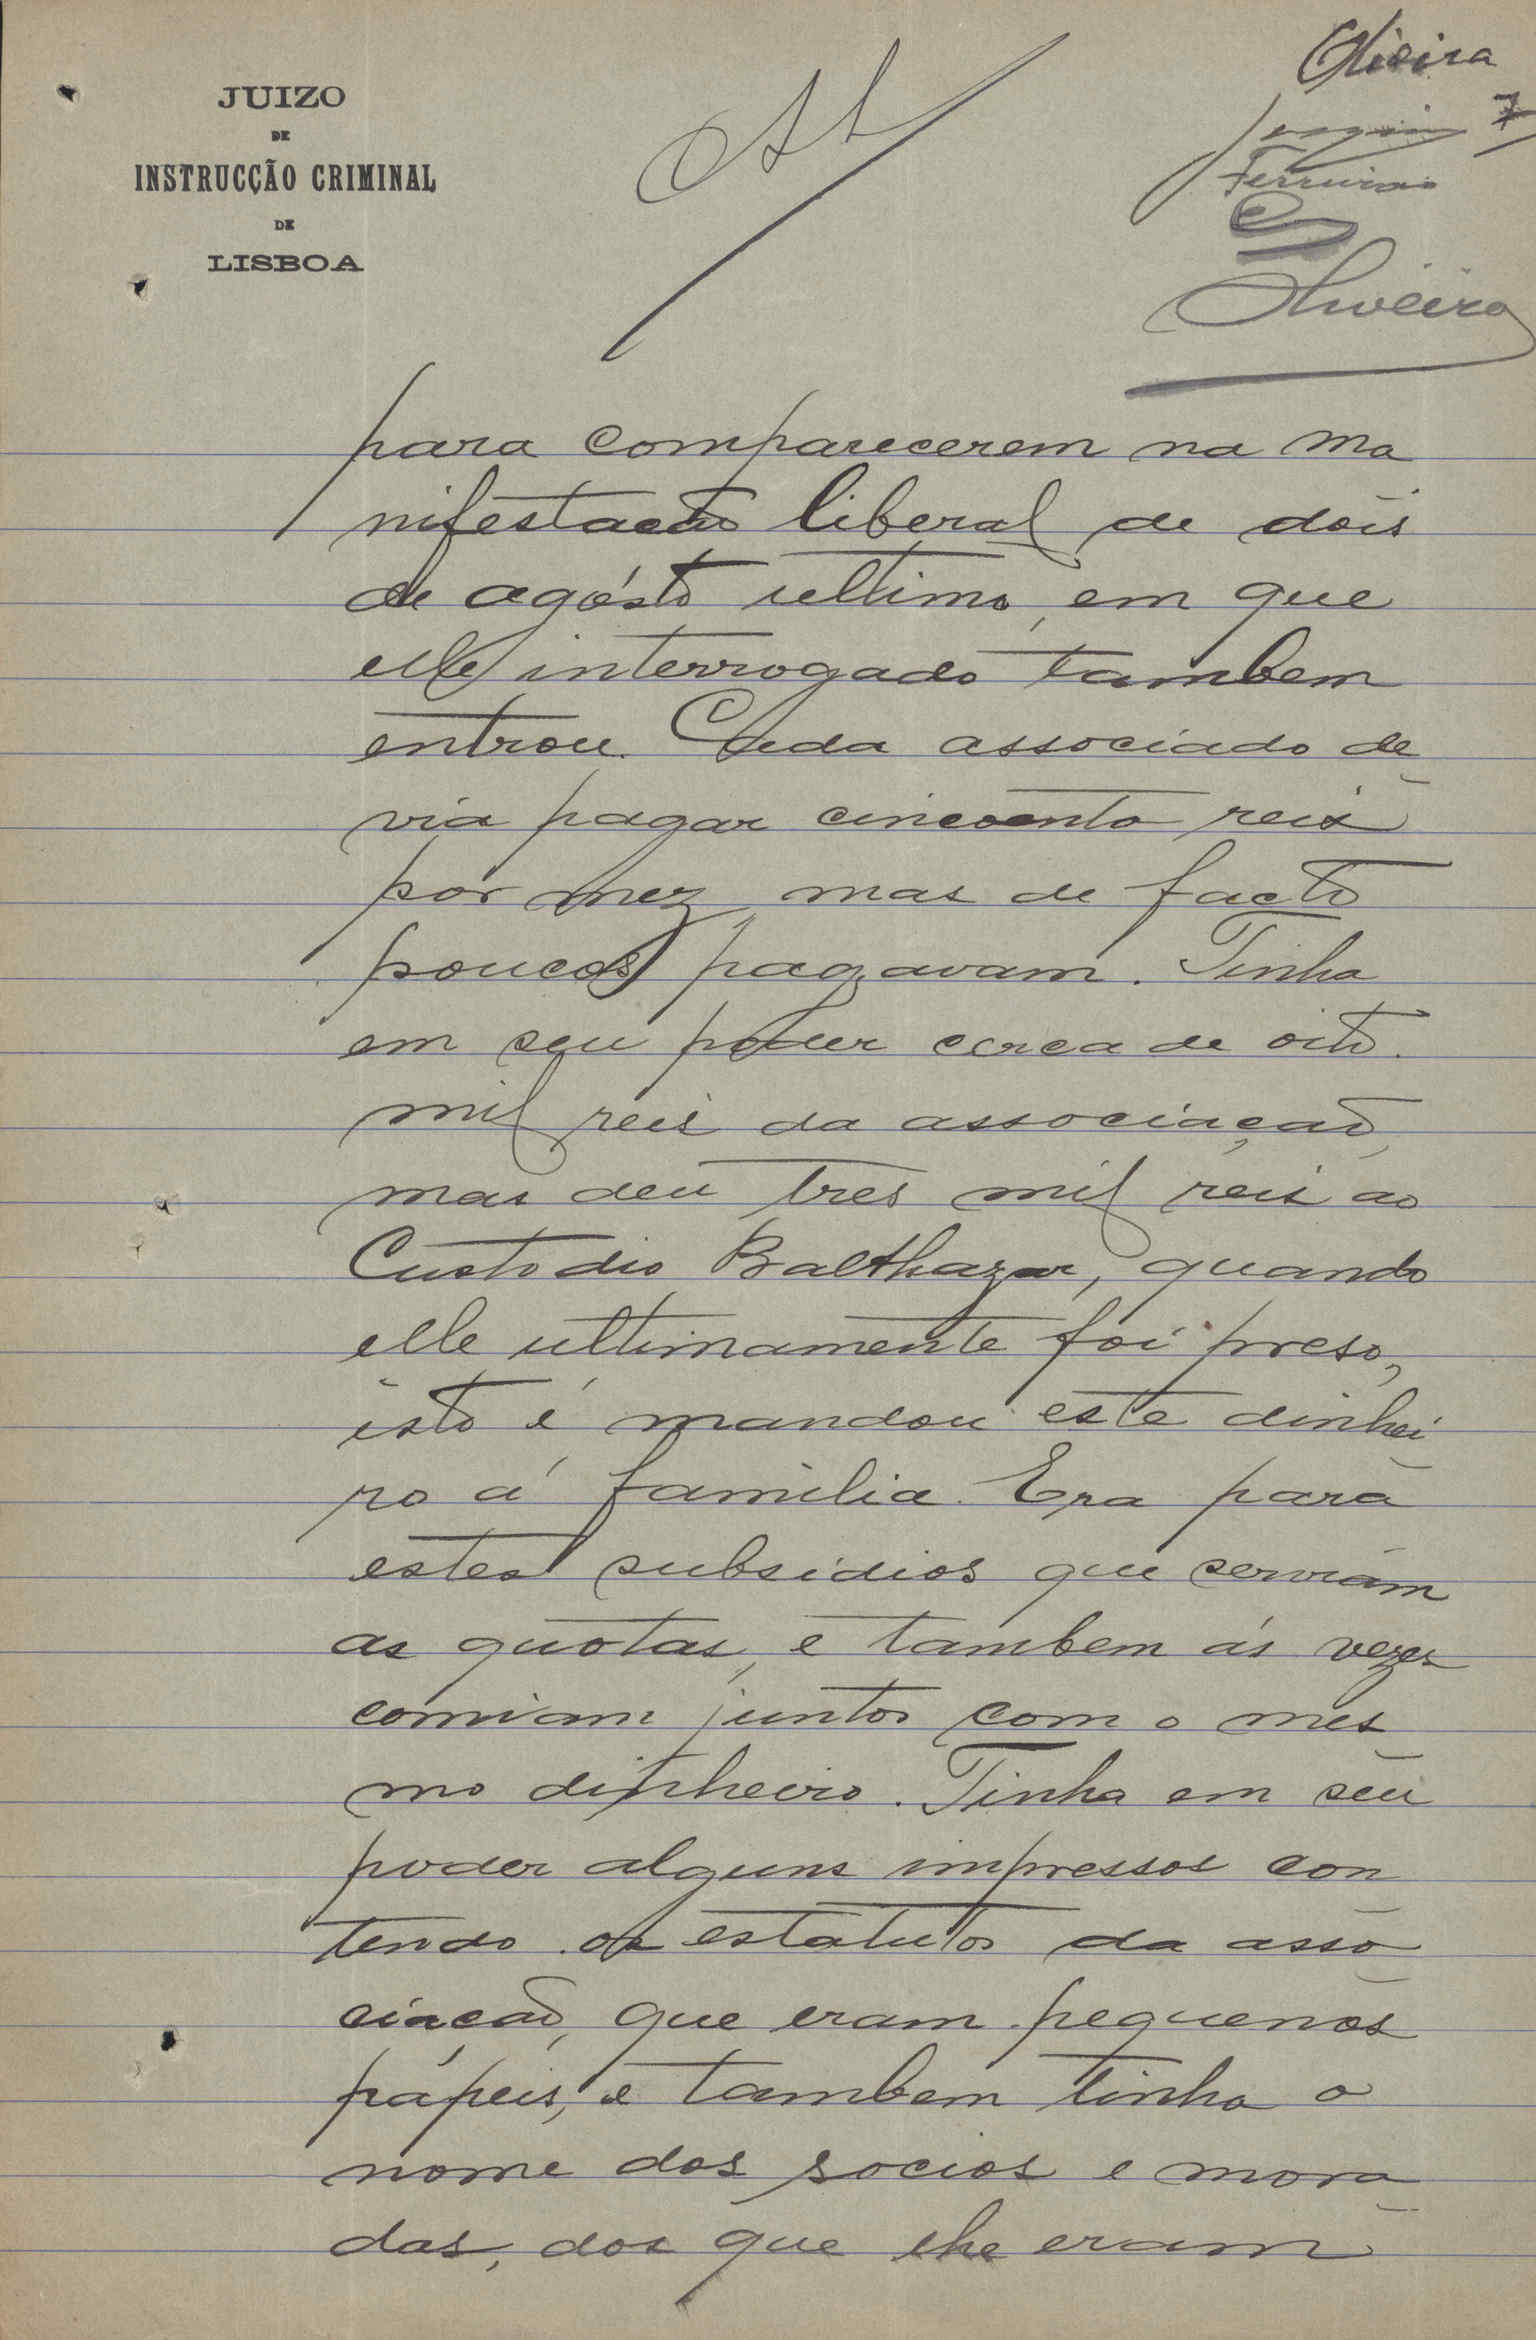 JUIZO
DE
INSTRUCÇÃO CRIMINAL
DE
LISBOA
Oliveira
7
Joaquim
Ferreira
Oliveira
para comparecerem na ma
nifestação liberal de dois
de agosto ultimo, em que
elle interrogado tambem
entrou. Cada associado de
via pagar cincoenta reis
por mez, mas de facto
poucos pagavam. Tinha
em seu poder cerca de oito
mil reis da associação,
mas deu tres mil reis ao
Custodio Balthazar, quando
elle ultimamente foi preso,
isto é mandou este dinhei
ro á familia. Era para
estes subsidios que serviam
as quotas, e tambem ás vezes
comiam juntos com o mes
mo dinheiro. Tinha em seu
poder alguns impressos con
tendo os estatutos da asso
ciação, que eram pequenos
papeis, e tambem tinha o
nome dos socios e mora
das, dos que lhe eram